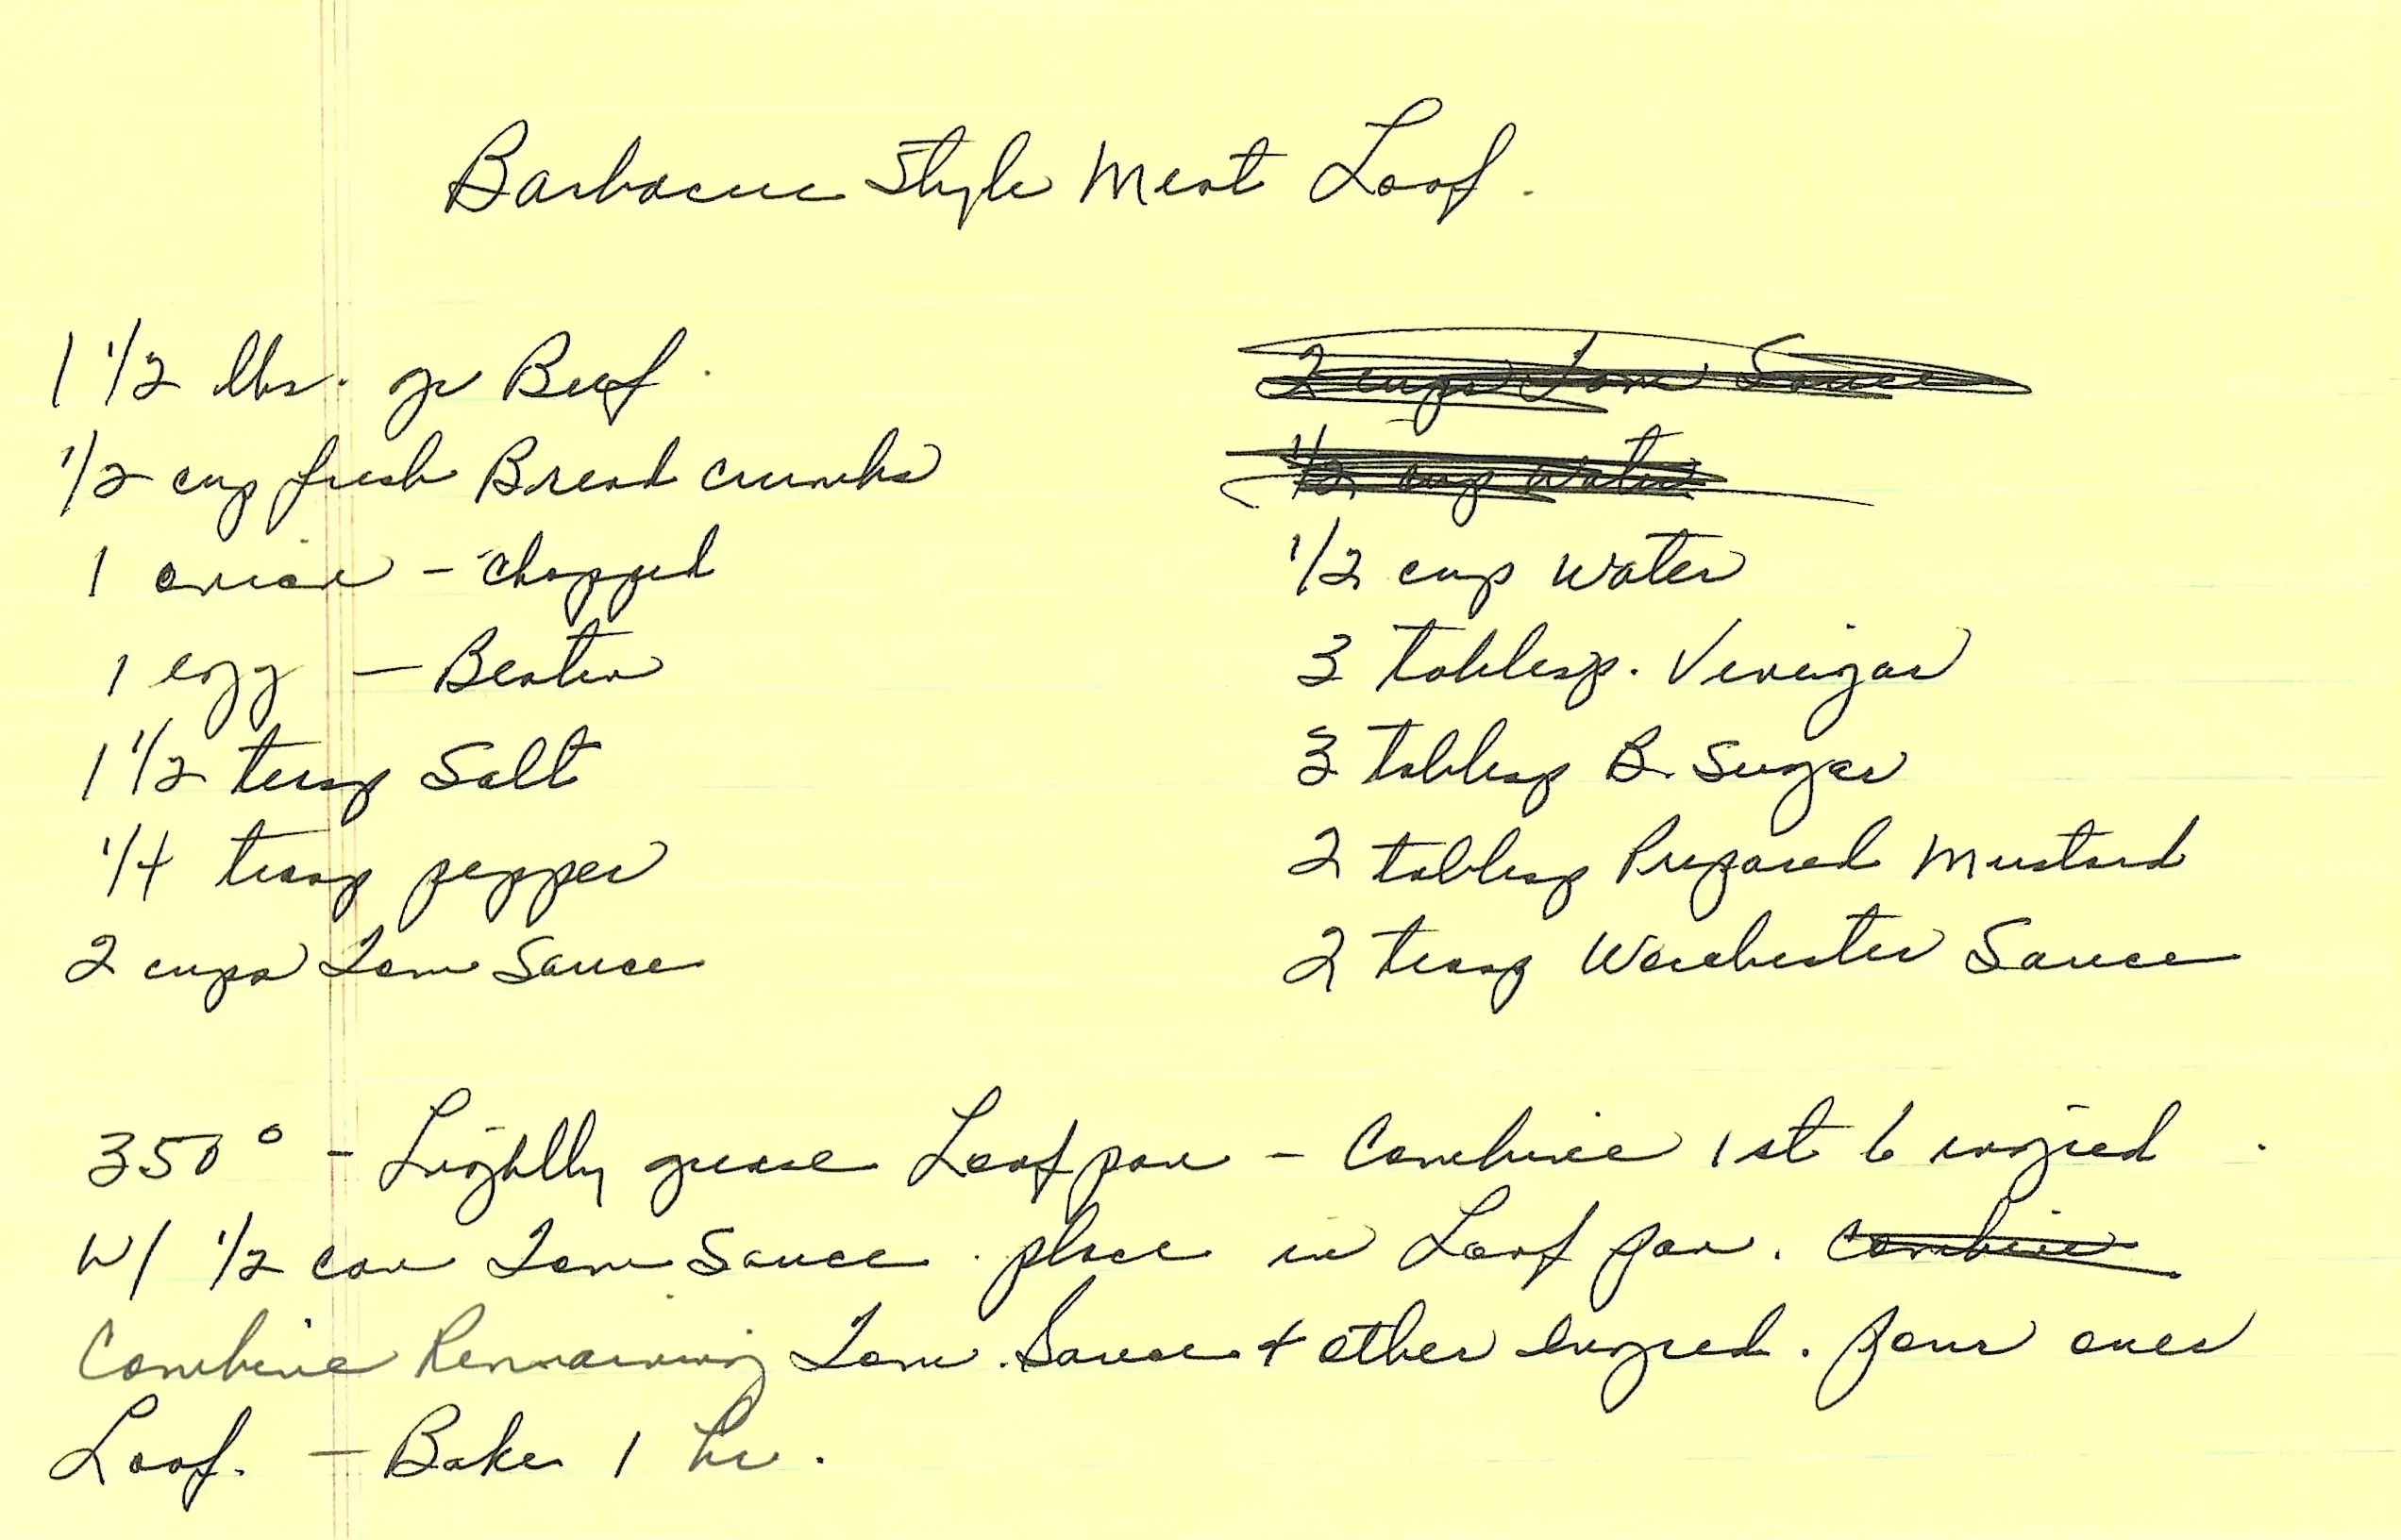 Barbacue Style Meat Loaf.
1 1/2 lbs. gr Beef.
1/2 cup fresh Bread crumbs
1 onion - chopped
1 egg - Beaten
1 1/2 teasp Salt
1/4 teasp pepper
2 cups Tom Sauce
2 cups Tom Sauce
1/2 cup water
1/2 cup water
3 tablesp. Vinegar
3 tablesp B. Sugar
2 tablesp Prepared Mustard
2 teasp Worchester Sauce
350° - Lightly grease Loaf pan - Combine 1st 6 ingred.
W/ 1/2 can Tom Sauce. place in Loaf pan. Combine
Combine Remaining Tom. Sauce + other Ingred. pour over
Loaf. - Bake 1 hr.